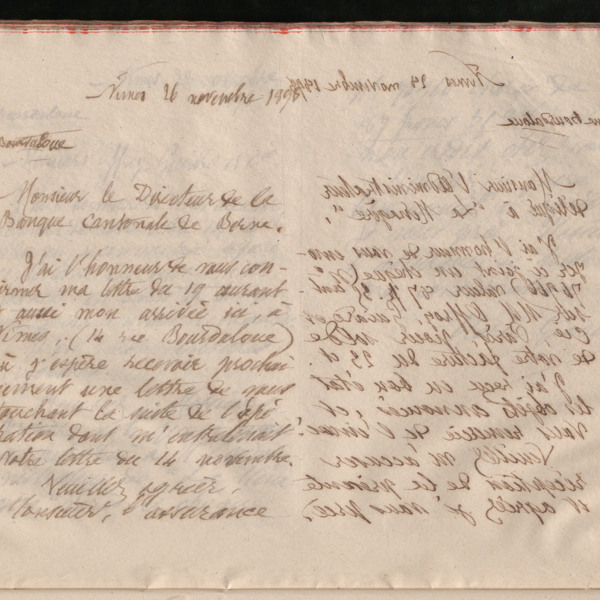 Nimes 26 novembre 1898
Bourdaloue
Monsieur le Directeur de la
Banque Cantonale de Berne.
J'ai l'honneur de vous con-
firmer ma lettre du 19 courant
et aussi mon arrivée ici, à
Nîmes, (14 rue Bourdaloue)
où j'espère recevoir prochai
nement une lettre de vous
touchant la suite de l'opé-
ration dont m'entretenait
votre lettre du 14 novembre.
Veuillez agréer,
Monsieur, l'assurance
Nimes 24 novembre
Bourdaloue
Monsieur l'Administrateur
délégué à "La Ménagère",
J'ai l'honneur de vous
ci joint un chèque
valeur
sur MM.
Cie Paris, pour solde
de votre facture du 23 ct.
J'ai reçu en bon état
les objets annoncés, et
vous remercie de l'envoi.
Veuillez m'accuser
réception de la présente
et agréer, je vous prie,